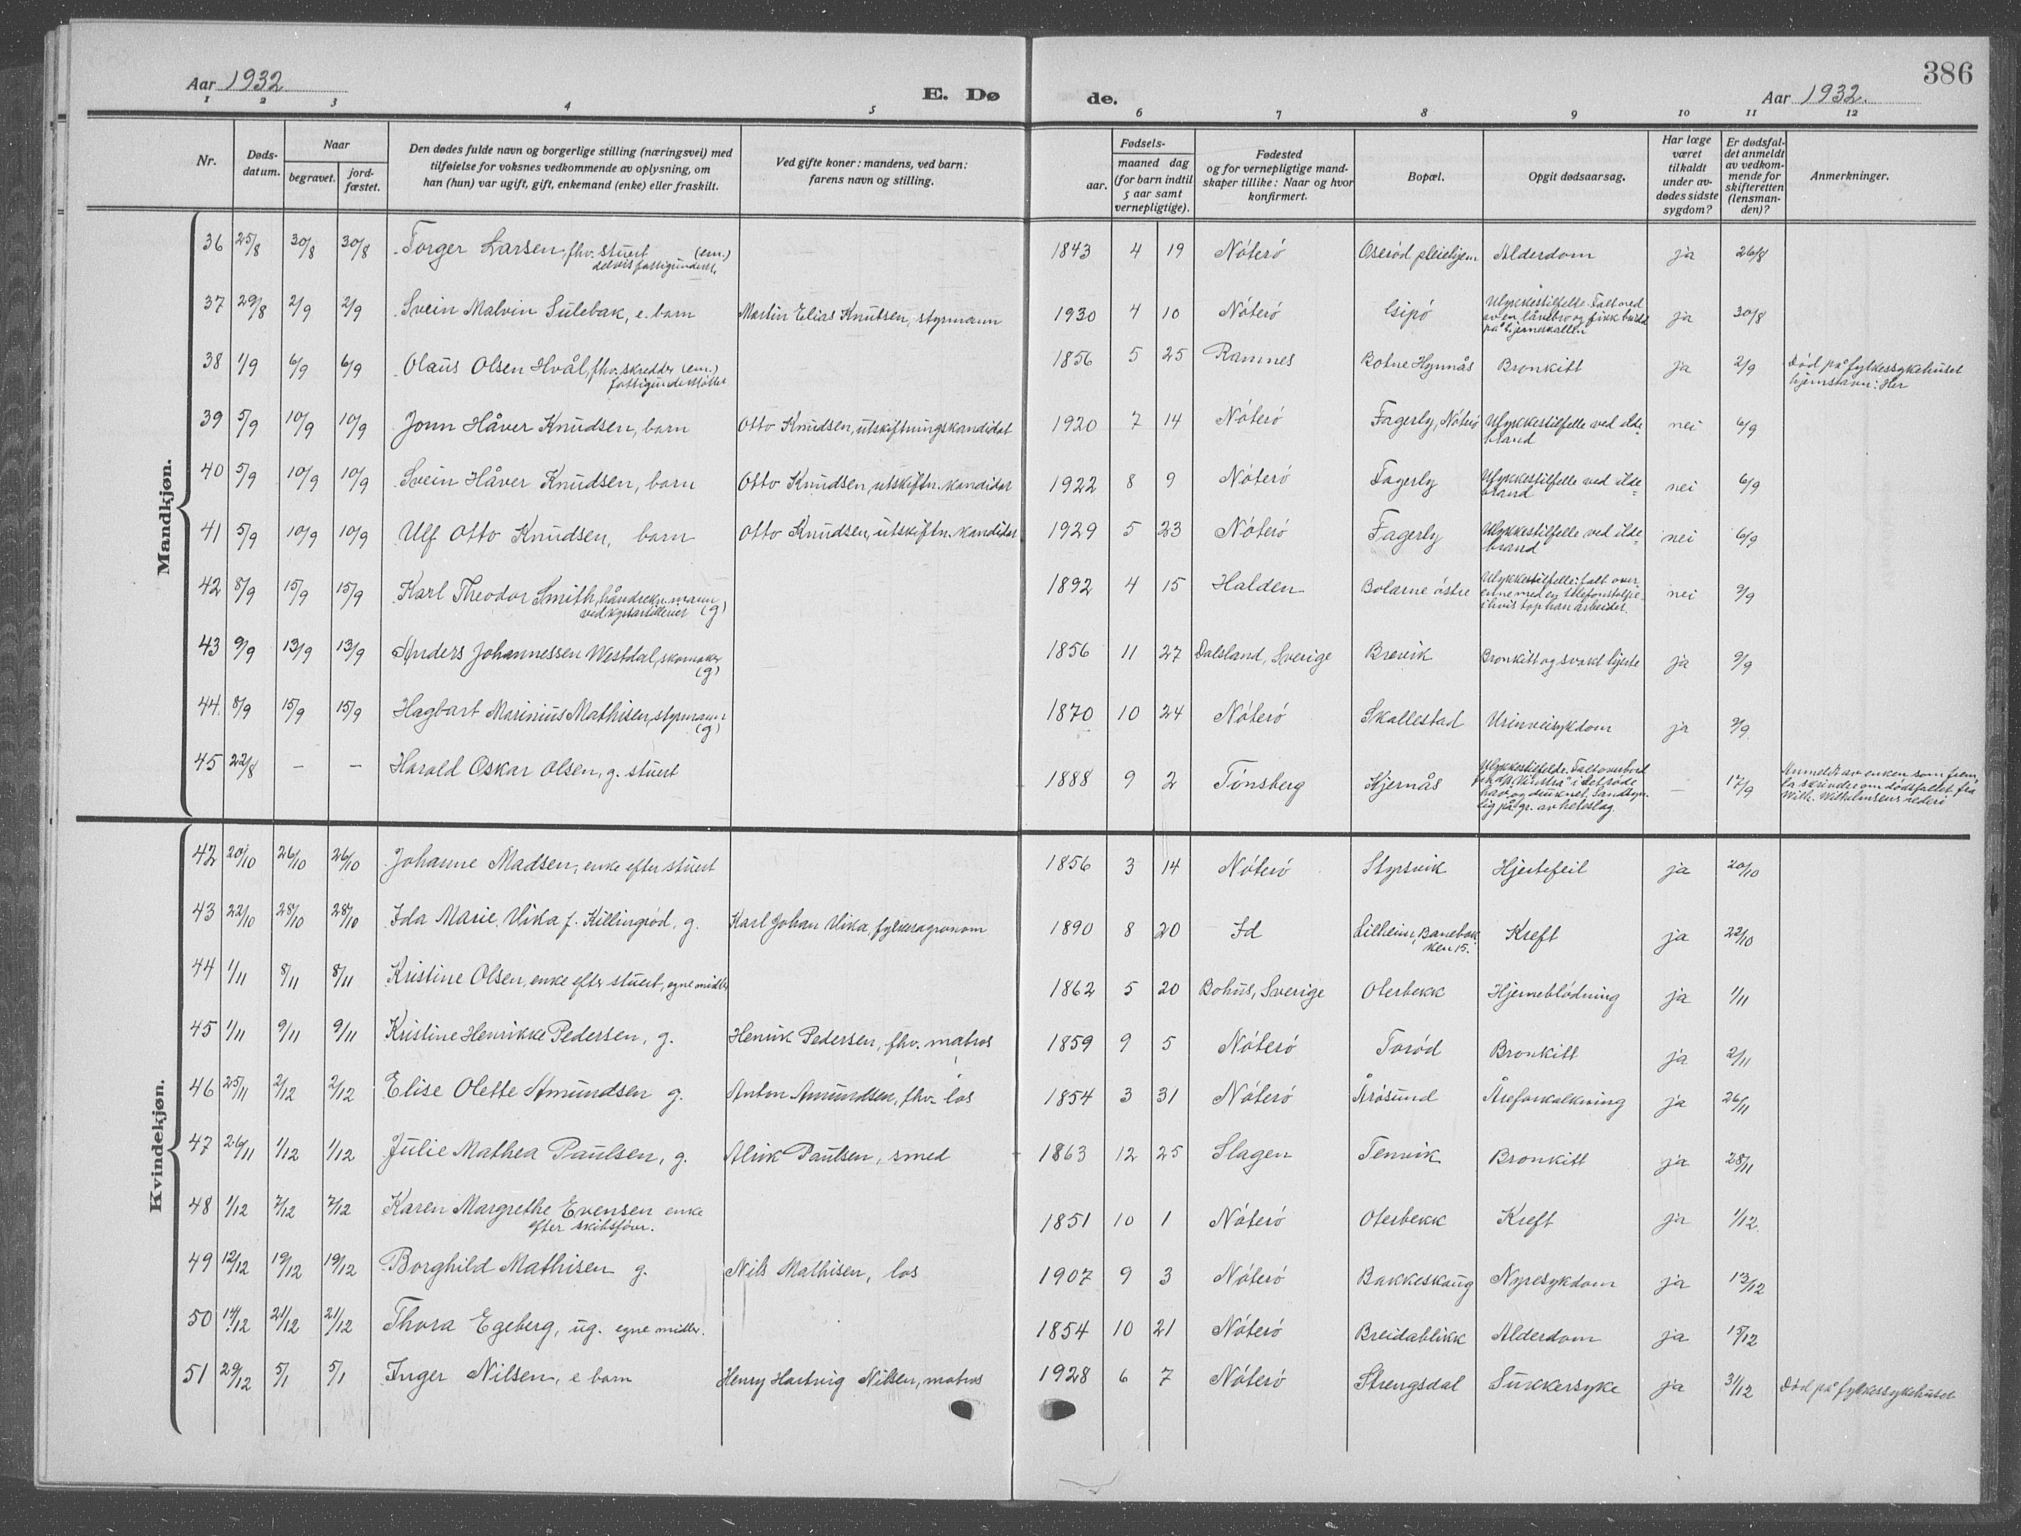 386
Aar 1932
E. Dø de.
Aar 1932.
1 2 3 4 5 6 7 8 9 10 11 12
Nr.
Døds-datum.
Naar
begravet.
jord-fæstet.
Den dødes fulde navn og borgerlige stilling (næringsvei) med
tilføielse for voksnes vedkommende av oplysning, om
han (hun) var ugift, gift, enkemand (enke) eller fraskilt.
Ved gifte koner: mandens, ved barn:
farens navn og stilling.
aar.
Fødsels-
maaned dag
(for barn indtil
5 aar samt
vernepligtige).
Fødested
og for vernepligtige mand-
skaper tillike: Naar og hvor
konfirmert.
Bopæl.
Opgit dødsaarsag.
Har læge
været
tilkaldt
under av-
dødes sidste
sygdom?
Er dødsfal-
det anmeldt
av vedkom-
mende for
skifteretten
(lensman-
den)?
Anmerkninger.
Mandkjøn.
36 25/8 30/8 30/8 Torger Larsen, fhv. stuert (em.) 1843 4 19 Nøterø Oserød pleiehjem Alderdom ja 26/8
delvis fattigunderst.
37 29/8 2/9 2/9 Svein Malvin Sulebak, e. barn Martin Elias Knutsen, styrmann 1930 4 10 Nøterø Gipø Ulykkestilfelle. Falt ned
av en låvebro og fikk brist
på hjerneskallen ja 30/8
38 1/9 6/9 6/9 Olaus Olsen Hvål, fhv. skredder (em.) 1856 5 25 Ramnes Botne Hynnås Bronkitt ja 2/9 Død på fylkessykehuset
fattigunderstøttet hjemstavn: Her
39 5/9 10/9 10/9 Jonn Håver Knudsen, barn Otto Knudsen, utskiftningskandidat 1920 7 14 Nøterø Fagerly, Nøterø Ulykkestilfelle ved ilde-
brand nei 6/9
40 5/9 10/9 10/9 Svein Håver Knudsen, barn Otto Knudsen, utskiftn. kandidat 1922 8 9 Nøterø Fagerly Ulykkestilfelle ved ilde-
brand nei 6/9
41 5/9 10/9 10/9 Ulf Otto Knudsen, barn Otto Knudsen, utskiftn. kandidat 1929 5 23 Nøterø Fagerly Ulykkestilfelle ved ilde-
brand nei 6/9
42 8/9 15/9 15/9 Karl Theodor Smith, håndrekn. mann 1892 4 15 Halden Bolærne østre Ulykkestilfelle: falt over-
ende med en telefonstolpe
i hvis top han arbeidet. nei 9/9
ved kystartilleriet (g)
43 9/9 13/9 13/9 Anders Johannessen Westdal, skomaker (g) 1856 11 27 Dalsland, Sverige Brevik Bronkitt og svakt hjerte ja 9/9
44 8/9 15/9 15/9 Hagbart Marinius Mathisen, styrmann (g) 1870 10 24 Nøterø Skallestad Urinveisykdom ja 9/9
45 22/8 – – Harald Oskar Olsen, g. stuert 1888 9 2 Tønsberg Kjernås Ulykkestilfelde. Falt overbord
i det røde
hav og druknet. Sandsyn-
lig på gr. av heteslag – 17/9 Anmeldt av enken som frem-
la skrivelse om dødsfallet fra
Wilh. Wilhelmsens rederi
Kvindekjøn.
42 20/10 26/10 26/10 Johanne Madsen, enke efter stuert 1856 3 14 Nøterø Styrsvik Hjertefeil ja 20/10
43 22/10 28/10 28/10 Ida Marie Vika f. Killingrød, g. Karl Johan Vika, fylkesagronom 1890 8 20 Id Lilheim, Banebak-
ken 15. Kreft ja 22/10
44 1/11 8/11 8/11 Kristine Olsen, enke efter stuert, egne midler 1862 5 20 Bohus, Sverige Oterbekk Hjerneblødning ja 1/11
45 1/11 9/11 9/11 Kristine Henrikke Pedersen, g. Henrik Pedersen, fhv. matros 1859 9 5 Nøterø Torød Bronkitt ja 2/11
46 25/11 2/12 2/12 Elise Olette Amundsen g. Anton Amundsen, fhv. los 1854 3 31 Nøterø Årøsund Åreforkalkning ja 26/11
47 26/11 1/12 1/12 Julie Mathea Paulsen, g. Alrik Paulsen, smed 1863 12 25 Slagen Tenvik Bronkitt ja 28/11
48 1/12 7/12 7/12 Karen Margrethe Evensen enke 1851 10 1 Nøterø Oterbekk Kreft ja 1/12
efter skibsfører.
49 12/12 19/12 19/12 Borghild Mathisen g. Nils Mathisen, los 1907 9 3 Nøterø Bakkeskaug Nyresykdom ja 13/12
50 14/12 21/12 21/12 Thora Egeberg, ug. egne midler. 1854 10 21 Nøterø Breidablikk Alderdom ja 15/12
51 29/12 5/1 5/1 Inger Nilsen, e barn Henry Hartvig Nilsen, matros 1928 6 7 Nøterø Strengsdal Sukkersyke ja 31/12 Død på fylkessykehuset